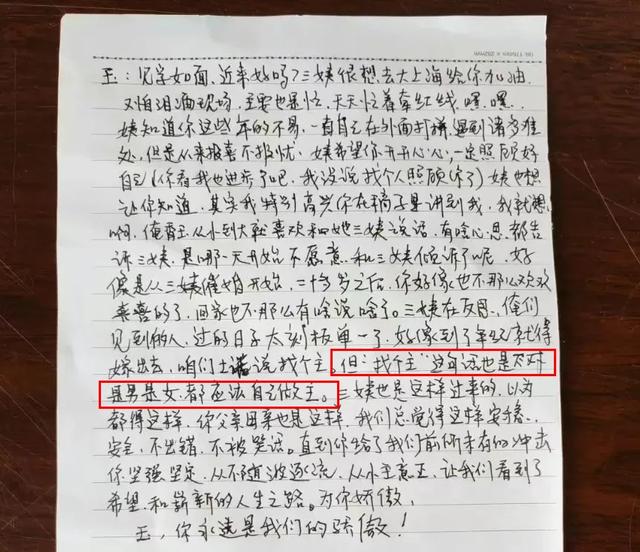 玉：见字如面，近来好吗？三姨很想去大上海给你加油，
又怕泪洒现场，主要也是忙，天天忙着牵红线，嘿，嘿..
姨知道你这些年的不易，一直自己在外面打拼，遇到诸多难
处，但是从来报喜不报忧，姨希望你开开心心，一定照顾好
自己（你看我也进步了吧，我没说找个人照顾你了）姨也想
让你知道，其实我特别高兴你在稿子里讲到我，我就想
啊，俺甭玉从小到大就喜欢和她三姨说话，有啥心思都告
诉三姨，是哪一天开始不愿意和三姨倾诉了呢，好
像是从三姨催婚开始，二十多岁之后，你好像也不那么欢欢
喜喜的了，回家也不那么有啥说啥了。三姨在反思，俺们
见到的人，过的日子太刻板单一了，好像到了年纪就得
嫁出去，咱们土话说找个主。但"找个主"这句话也是不对
是男是女都应该自己做主。三姨也是这样过来的，以为
都得这样，你父亲母亲也是这样，我们总觉得这样安稳，
安全，不出错，不被笑话。直到你给了我们前所未有的冲击
你坚强坚定，从不随波逐流，从小主意正，让我们看到了
希望和崭新的人生之路。为你骄傲，
玉，你永远是我们的骄傲！